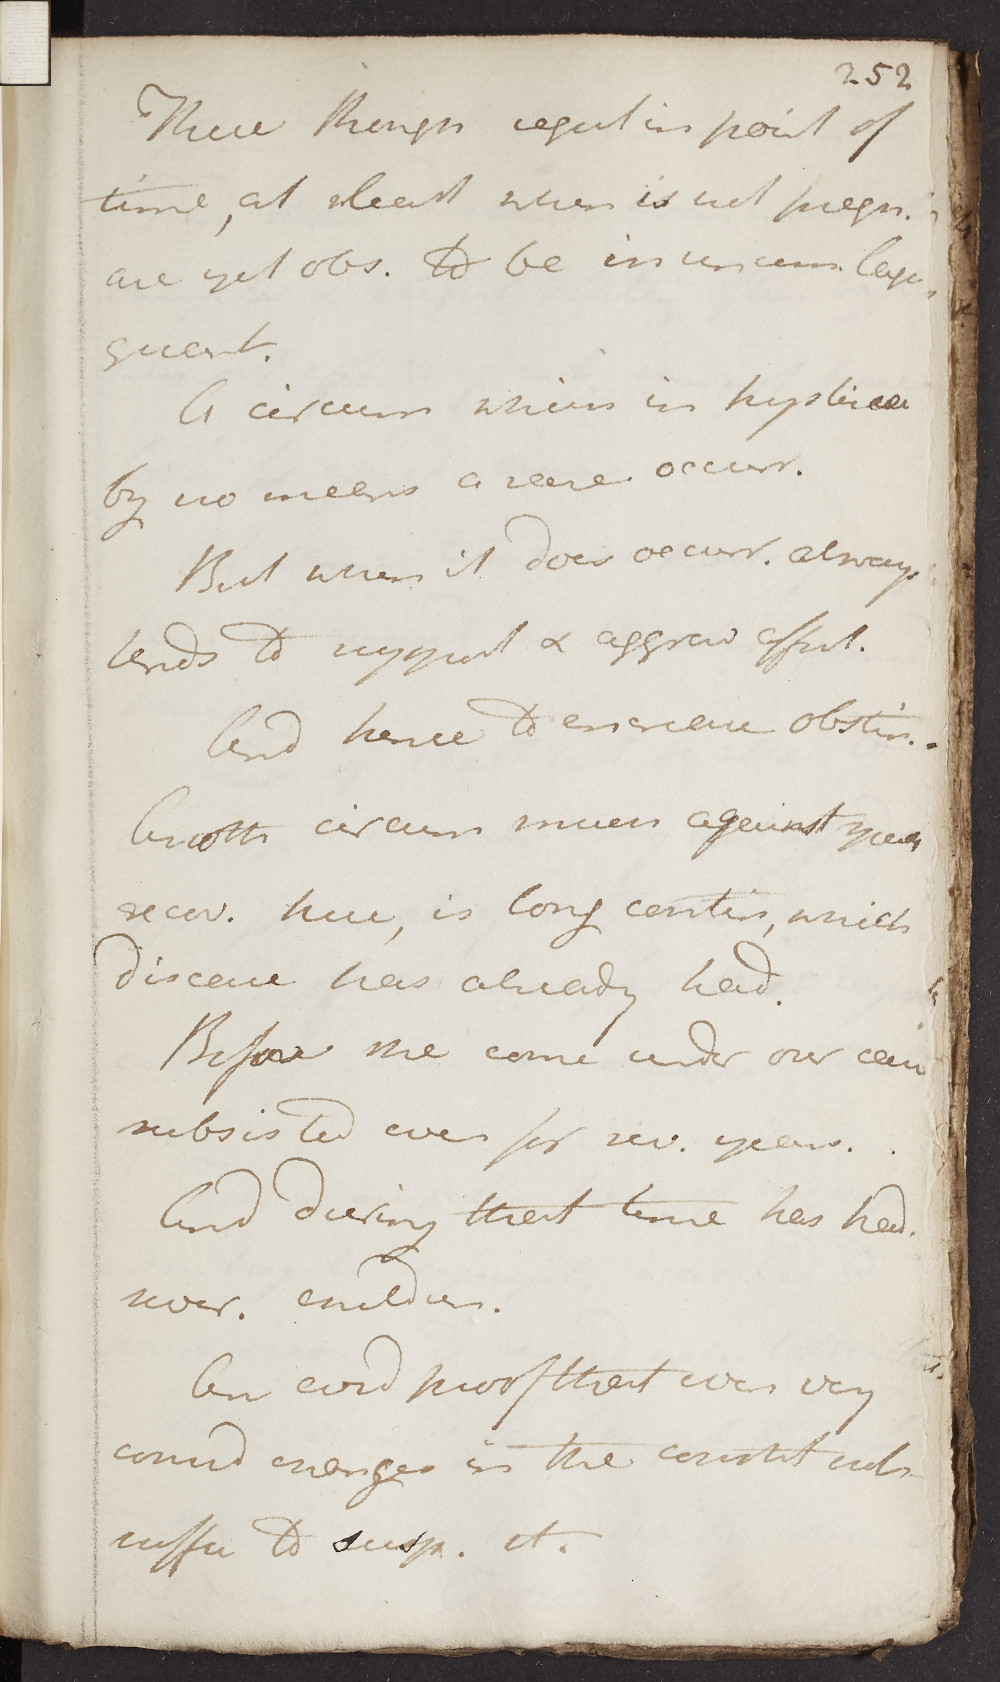 252
These though regul in point of
time, at least when is not pregn.
are yet obs. to be in uncum.
quant.
A circum which in hysteric
by no means a rare occurr.
But when it does occurr. always
tends to support & aggrav affect.
And hence to increase obstin.
Anoth circum much against
recov. here, is long contin, which
disease has already had.
Before she came under our care
subsisted even for sev. years.
And during that time has had
sever. children.
An evid proof that even very
consid changes in the constit not
suffic to susp. it.